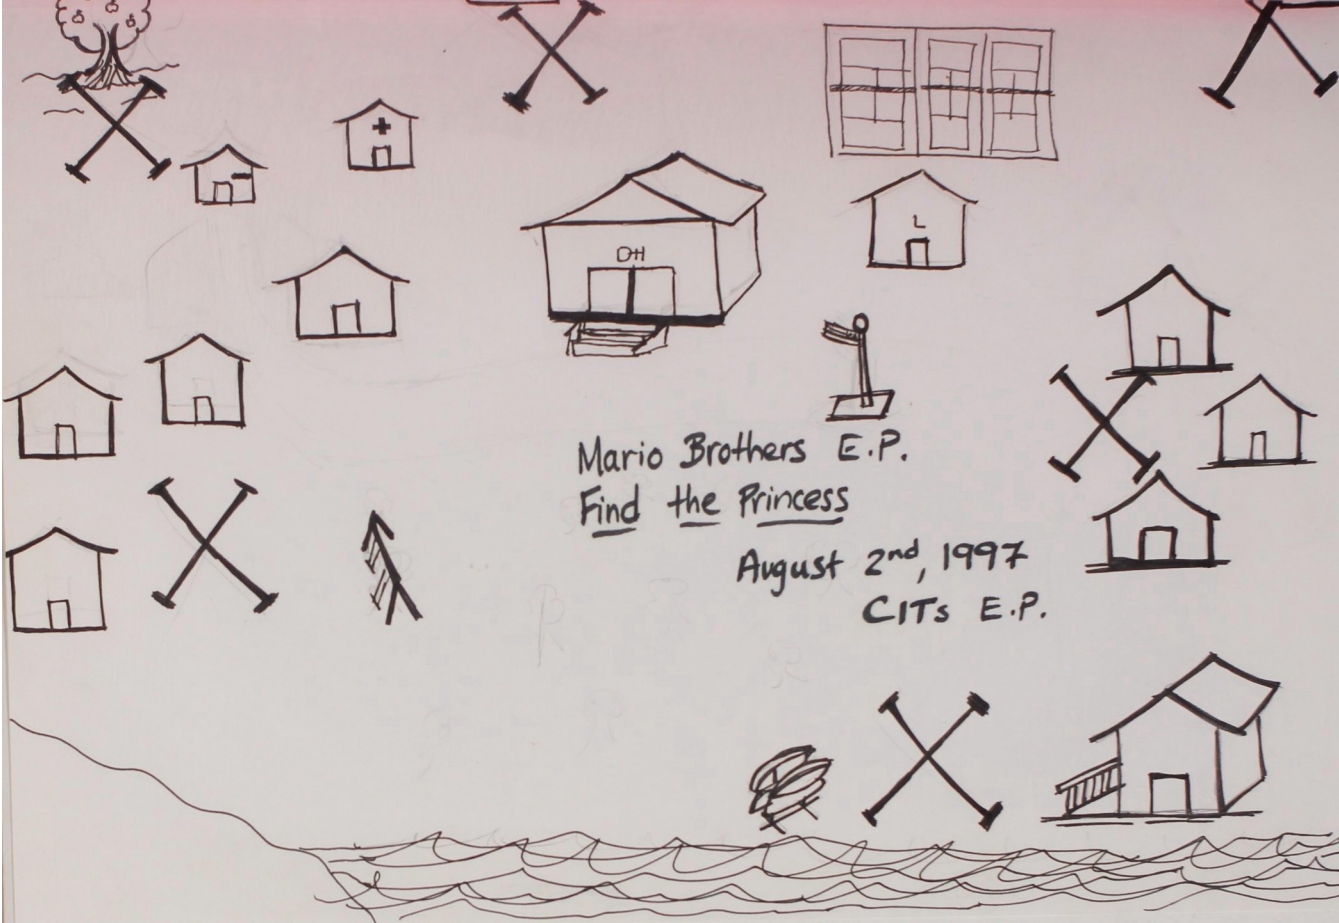 DH
L
Mario Brothers E.P.
Find the Princess
August 2nd, 1997
CITs E.P.